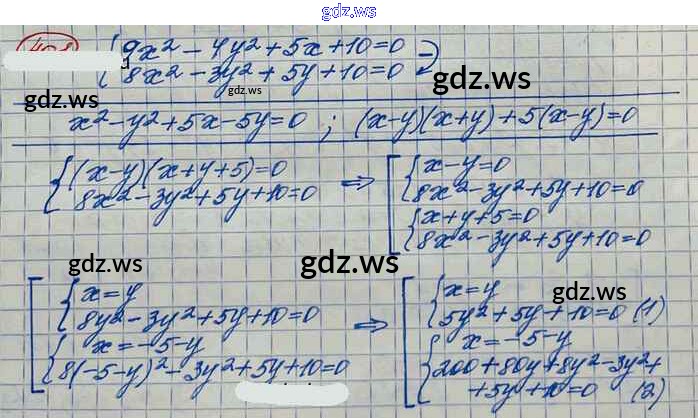 gdz.ws
{9x² - 4y² + 5x + 10 = 0
{8x² - 3y² + 5y + 10 = 0
gdz.ws
gdz.ws
gdz.ws
x² - y² + 5x - 5y = 0 ; (x-y)(x+y) + 5(x-y) = 0
{(x-y)(x+y+5) = 0
{8x² - 3y² + 5y + 10 = 0
⇒
[{x - y = 0
{8x² - 3y² + 5y + 10 = 0
{x + y + 5 = 0
{8x² - 3y² + 5y + 10 = 0
gdz.ws
gdz.ws
[{x = y
{8y² - 3y² + 5y + 10 = 0
{x = -5 - y
{8(-5-y)² - 3y² + 5y + 10 = 0
⇒
[{x = y
gdz.ws
{5y² + 5y + 10 = 0 (1)
{x = -5 - y
{200 + 80y + 8y² - 3y² +
+ 5y + 10 = 0 (2)